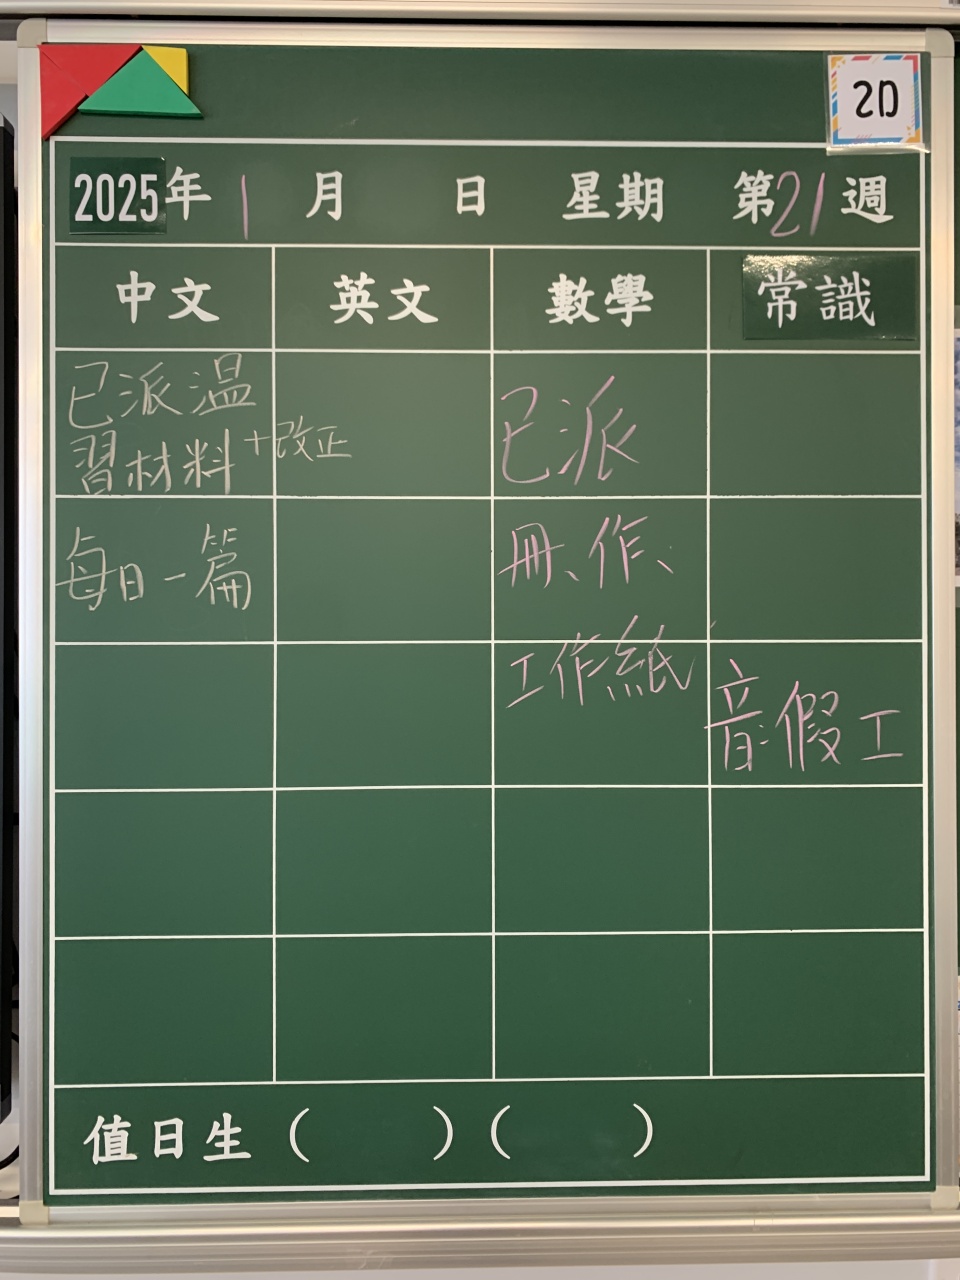 2D
2025年 1 月 日 星期 第21週
中文 英文 數學 常識
已派溫
習材料+改正
每日一篇
已派
冊、作、
工作紙
音:假工
值日生( )( )